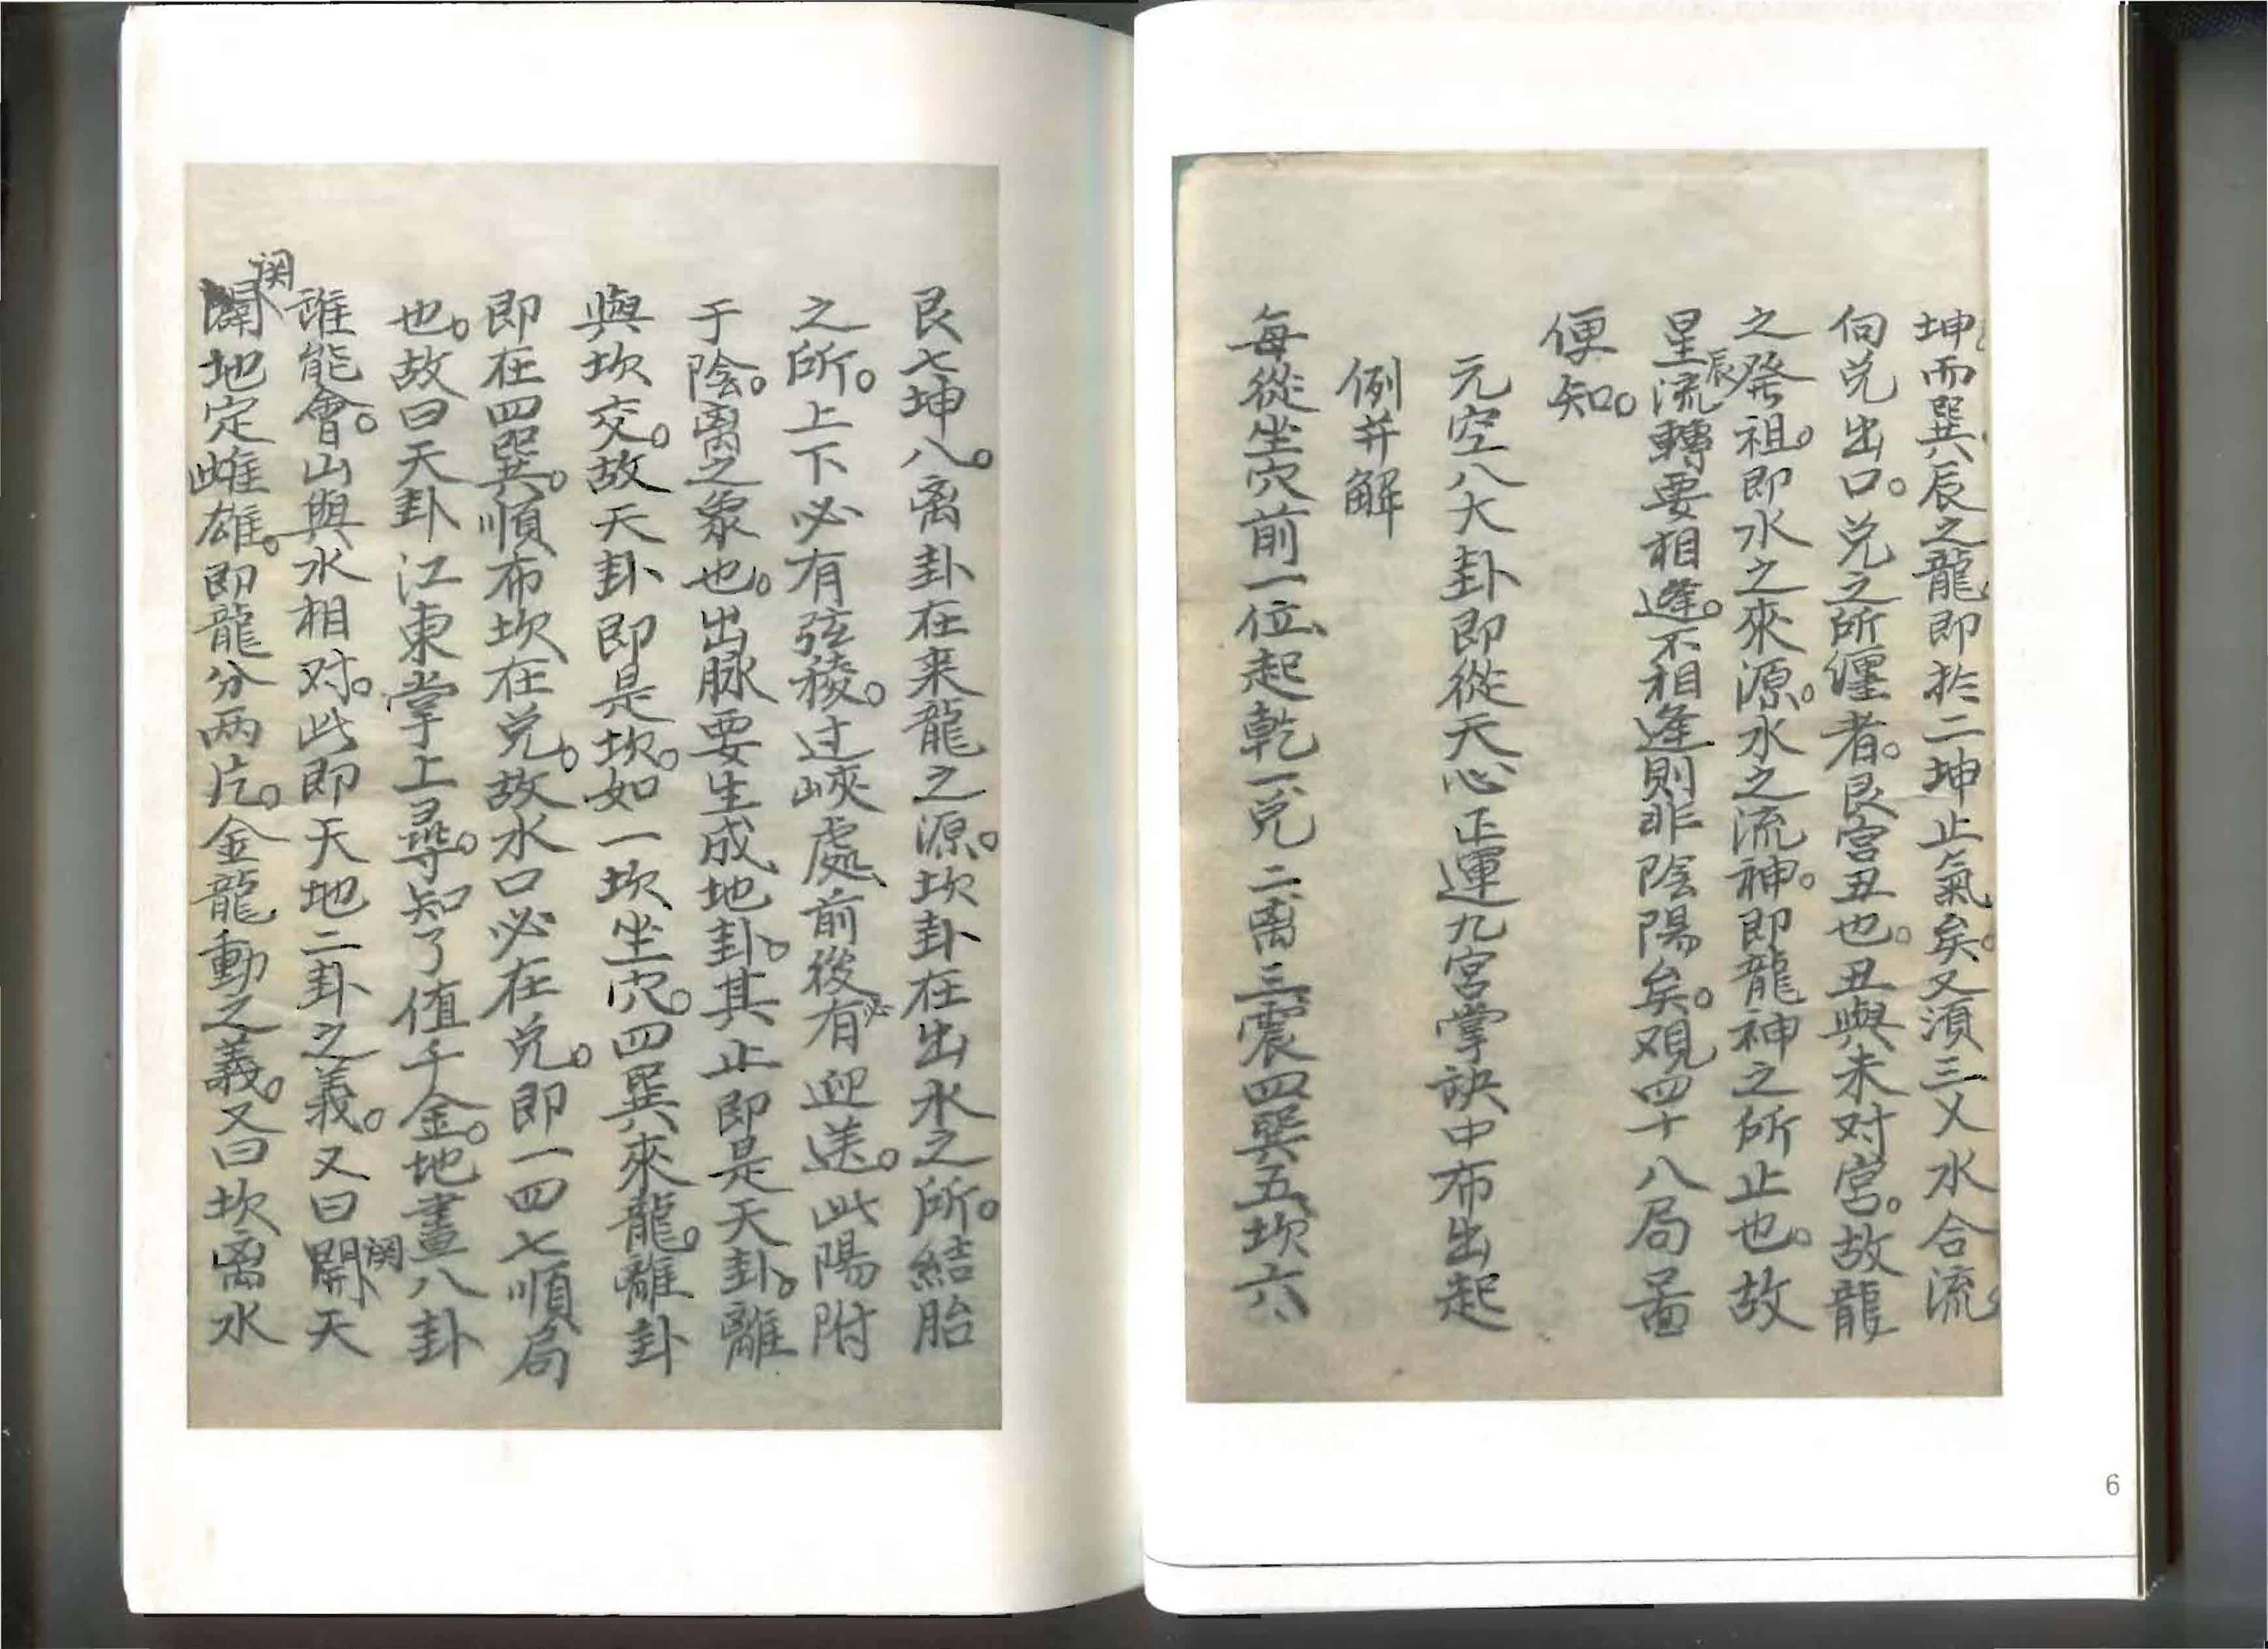 坤而巽辰之龍即於二坤止氣矣。又須三乂水合流
向兌出口。兌之所纏者。艮宮丑也。丑與未对宮。故龍
之發祖。即水之來源。水之流神。即龍神之所止也。故
星辰流轉要相逢。不相逢則非陰陽矣。观四十八局啚
便知。
元空八大卦即從天心正運九宮掌訣中布出起
例并解
每從坐穴前一位、起乾一兌二离三震四巽五坎六
艮七坤八。离卦在来龍之源。坎卦在出水之所。結胎
之所。上下必有弦稜。过峽處、前後必有迎送。此陽附
于陰。离之象也。出脉要生成地卦。其止即是天卦。離
與坎交。故天卦即是坎。如一坎坐穴。四巽來龍。離卦
即在四巽。順布坎在兌。故水口必在兌。即一四七順局
也。故曰天卦江東掌上尋。知了值千金。地畫八卦
誰能會。山與水相对。此即天地二卦之義。又曰關天
關地定雌雄。即龍分两片。金龍動之義。又曰坎离水
6